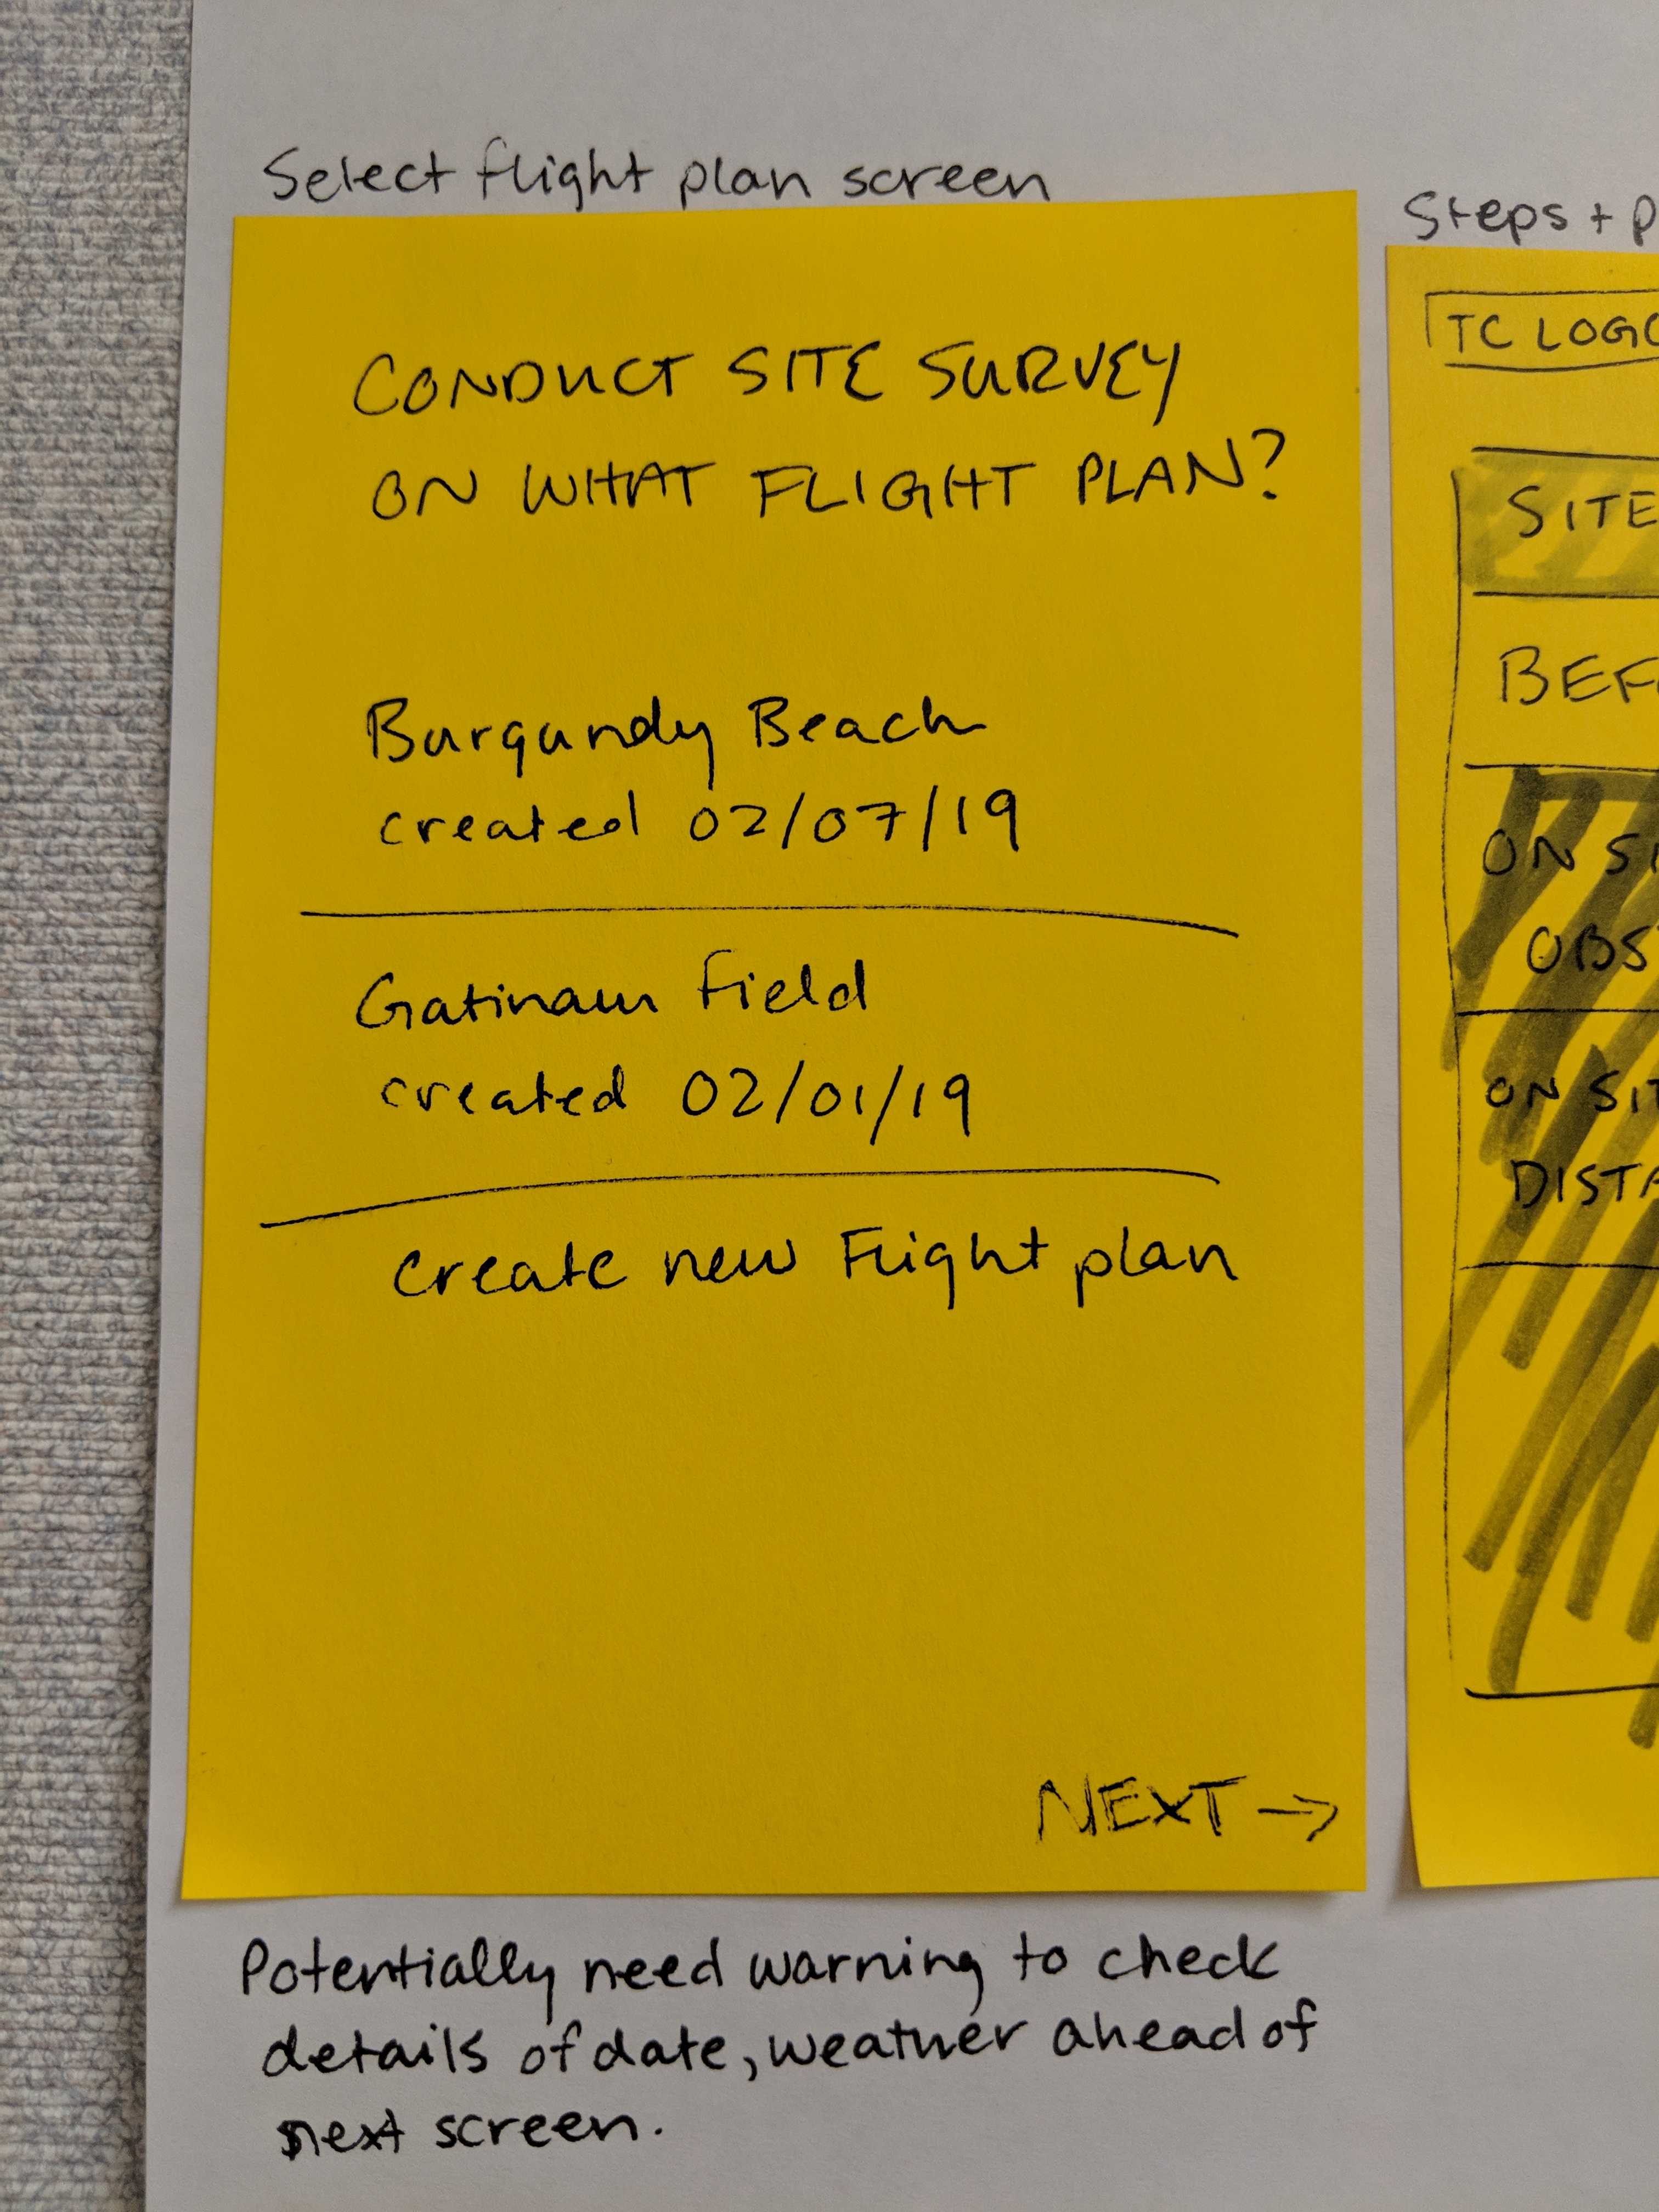 Select flight plan screen
CONDUCT SITE SURVEY
ON WHAT FLIGHT PLAN?
Burgundy Beach
created 02/07/19
Gatineau Field
created 02/01/19
create new Flight plan
NEXT →
Potentially need warning to check
details of date, weather ahead of
next screen.
Steps +
TC LOGO
SITE
ON
ON